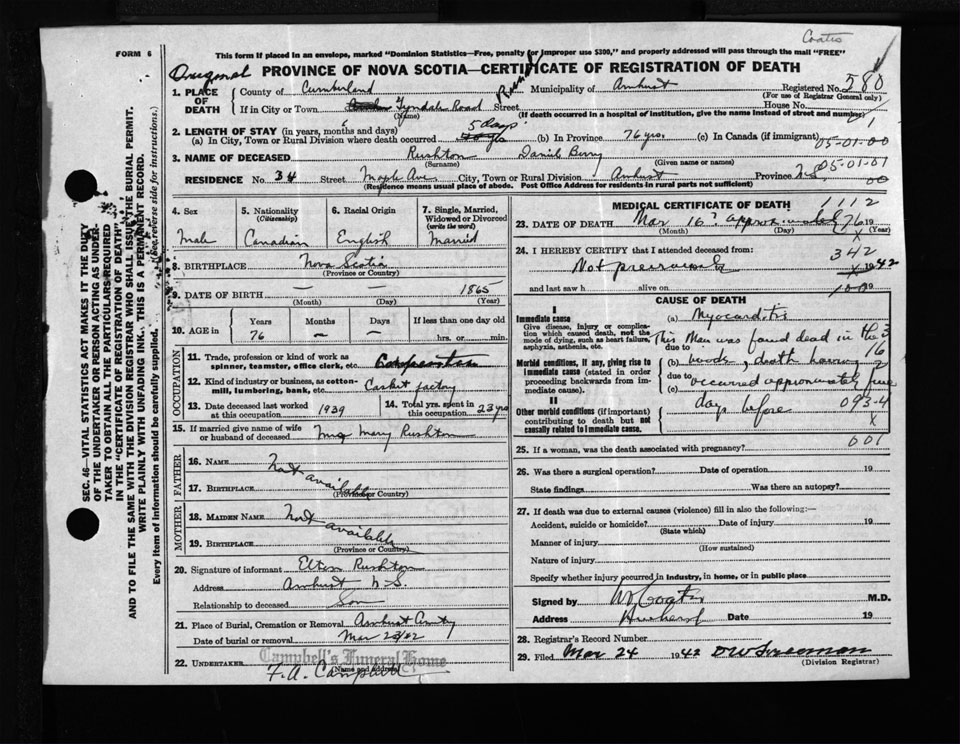 Coates
FORM 6
This form if placed in an envelope, marked "Dominion Statistics—Free, penalty for improper use $300," and properly addressed will pass through the mail "FREE"
Original PROVINCE OF NOVA SCOTIA—CERTIFICATE OF REGISTRATION OF DEATH
1. PLACE OF DEATH County of Cumberland Municipality of Amherst Registered No. 580
(For use of Registrar General only)
If in City or Town Tyndale Road Street House No.
(Name) (If death occurred in a hospital of institution, give the name instead of street and number)
2. LENGTH OF STAY (in years, months and days)
(a) In City, Town or Rural Division where death occurred 5 days (b) In Province 76 yrs. (c) In Canada (if immigrant)
05-01-00
3. NAME OF DECEASED Rushton
(Surname) (Given name or names)
05-01-01
RESIDENCE No. 34 Street Maple Ave City, Town or Rural Division Amherst Province N.S.
00
(Residence means usual place of abode. Post Office Address for residents in rural parts not sufficient)
4. Sex Male
5. Nationality (Citizenship) Canadian
6. Racial Origin English
7. Single, Married, Widowed or Divorced (write the word) Married
8. BIRTHPLACE Nova Scotia
(Province or Country)
9. DATE OF BIRTH — — 1865
(Month) (Day) (Year)
10. AGE in Years Months Days If less than one day old
76 — — hrs. or min.
OCCUPATION
11. Trade, profession or kind of work as spinner, teamster, office clerk, etc.
12. Kind of industry or business, as cotton-mill, lumbering, bank, etc. Casket factory
13. Date deceased last worked at this occupation 1939
14. Total yrs. spent in this occupation 23 yrs
15. If married give name of wife or husband of deceased Mrs Mary Rushton
FATHER
16. NAME Not available
17. BIRTHPLACE
(Province or Country)
MOTHER
18. MAIDEN NAME Not available
19. BIRTHPLACE
(Province or Country)
20. Signature of informant Rushton
Address Amherst N.S.
Relationship to deceased Son
21. Place of Burial, Cremation or Removal Amherst
Date of burial or removal Mar 23/42
22. UNDERTAKER Campbell's Funeral Home
(Name and address)
F. A. Campbell
MEDICAL CERTIFICATE OF DEATH
1112
23. DATE OF DEATH Mar 16? approximated 76 19
(Month) (Day) (Year)
24. I HEREBY CERTIFY that I attended deceased from:
342
Not previously 1942
and last saw h alive on 19
CAUSE OF DEATH
I
Immediate cause (a) Myocarditis
Give disease, injury or complication which caused death, not the mode of dying, such as heart failure, asphyxia, asthenia, etc.
due to This Man was found dead in the
Morbid conditions, if any, giving rise to immediate cause (stated in order proceeding backwards from immediate cause).
(b) woods, death having
due to
(c) occurred approximately five
II
Other morbid conditions (if important) contributing to death but not causally related to immediate cause.
days before 093-4
x
601
25. If a woman, was the death associated with pregnancy?
26. Was there a surgical operation? Date of operation 19
State findings Was there an autopsy?
27. If death was due to external causes (violence) fill in also the following:—
Accident, suicide or homicide? Date of injury 19
(State which)
Manner of injury
(How sustained)
Nature of injury
Specify whether injury occurred in industry, in home, or in public place
Signed by Coates M.D.
Address Amherst Date 19
28. Registrar's Record Number
29. Filed Mar 24 1942
(Division Registrar)
SEC. 46—VITAL STATISTICS ACT MAKES IT THE DUTY
OF THE UNDERTAKER OR PERSON ACTING AS UNDER-
TAKER TO OBTAIN ALL THE PARTICULARS REQUIRED
IN THE "CERTIFICATE OF REGISTRATION OF DEATH"
AND TO FILE THE SAME WITH THE DIVISION REGISTRAR WHO SHALL ISSUE THE BURIAL PERMIT.
WRITE PLAINLY WITH UNFADING INK. THIS IS A PERMANENT RECORD.
Every item of information should be carefully supplied. (See reverse side for instructions.)